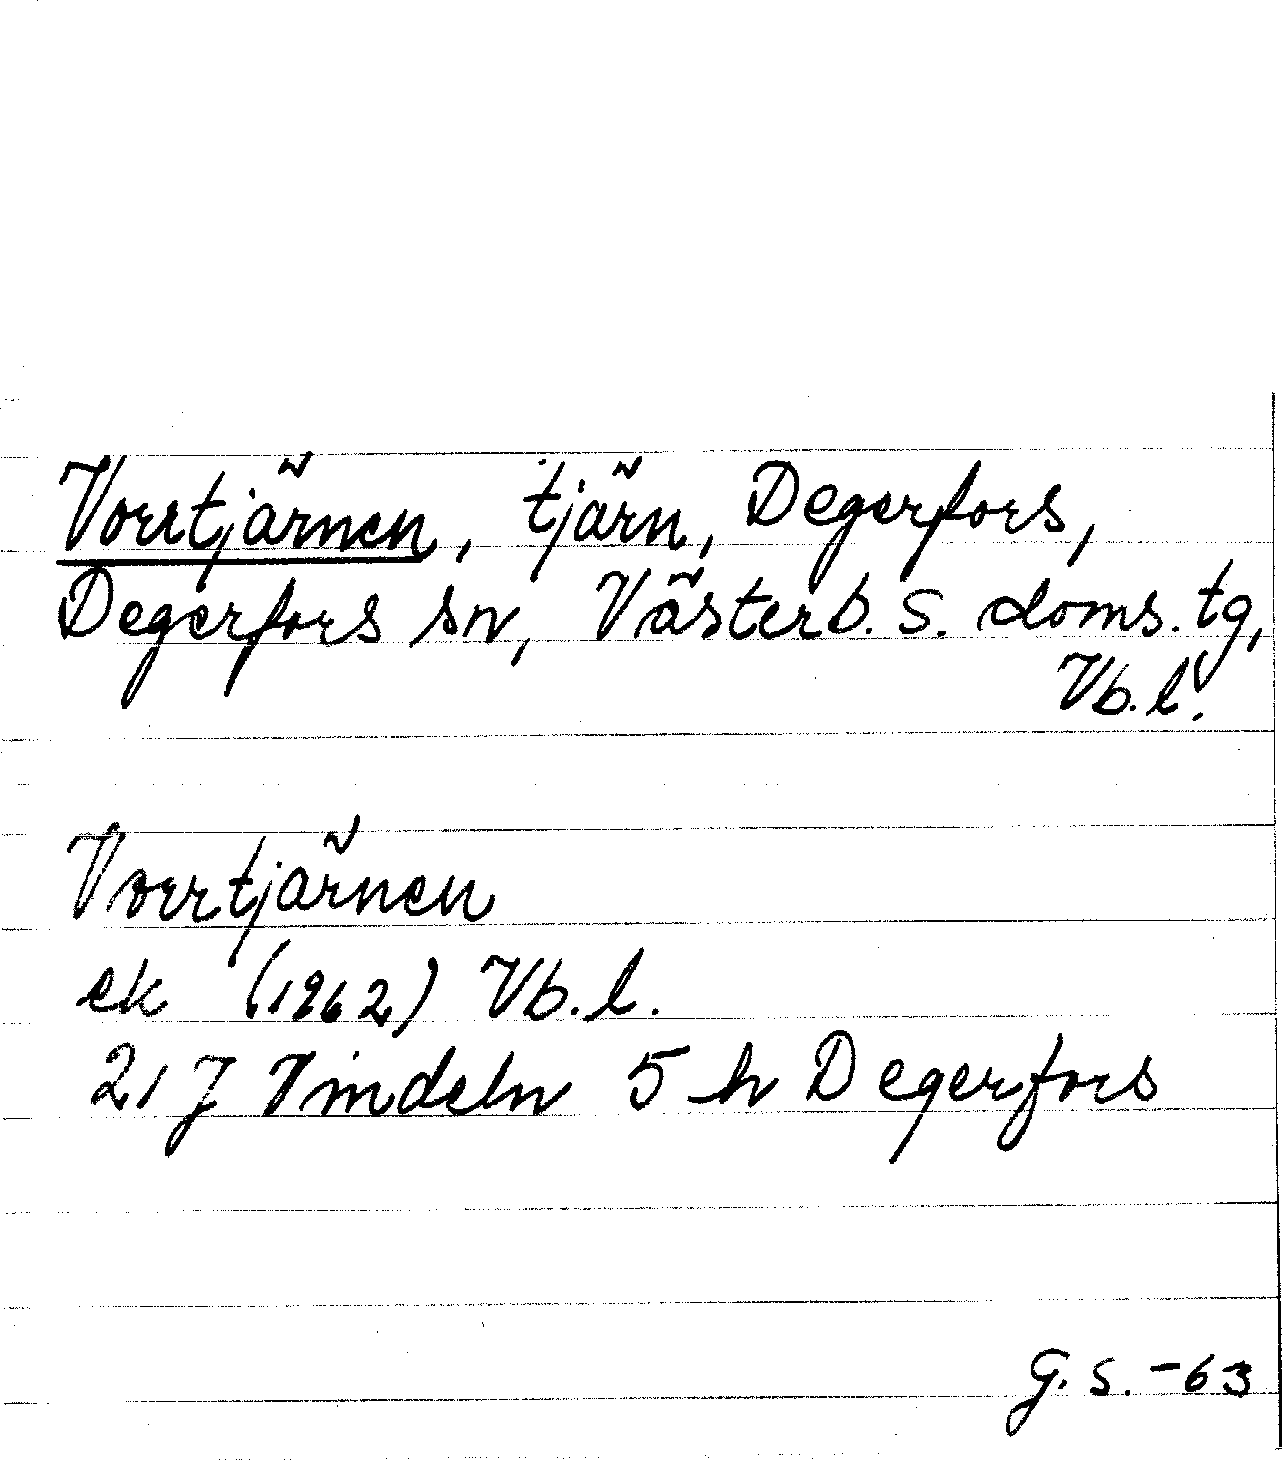 Vorrtjärnen, tjärn, Degerfors,
Degerfors sn, Västerb. s. doms. tg,
Vb. l.
Vorrtjärnen
ek (1962) Vb. l.
21 J Vindeln 5 h Degerfors
G. S. -63